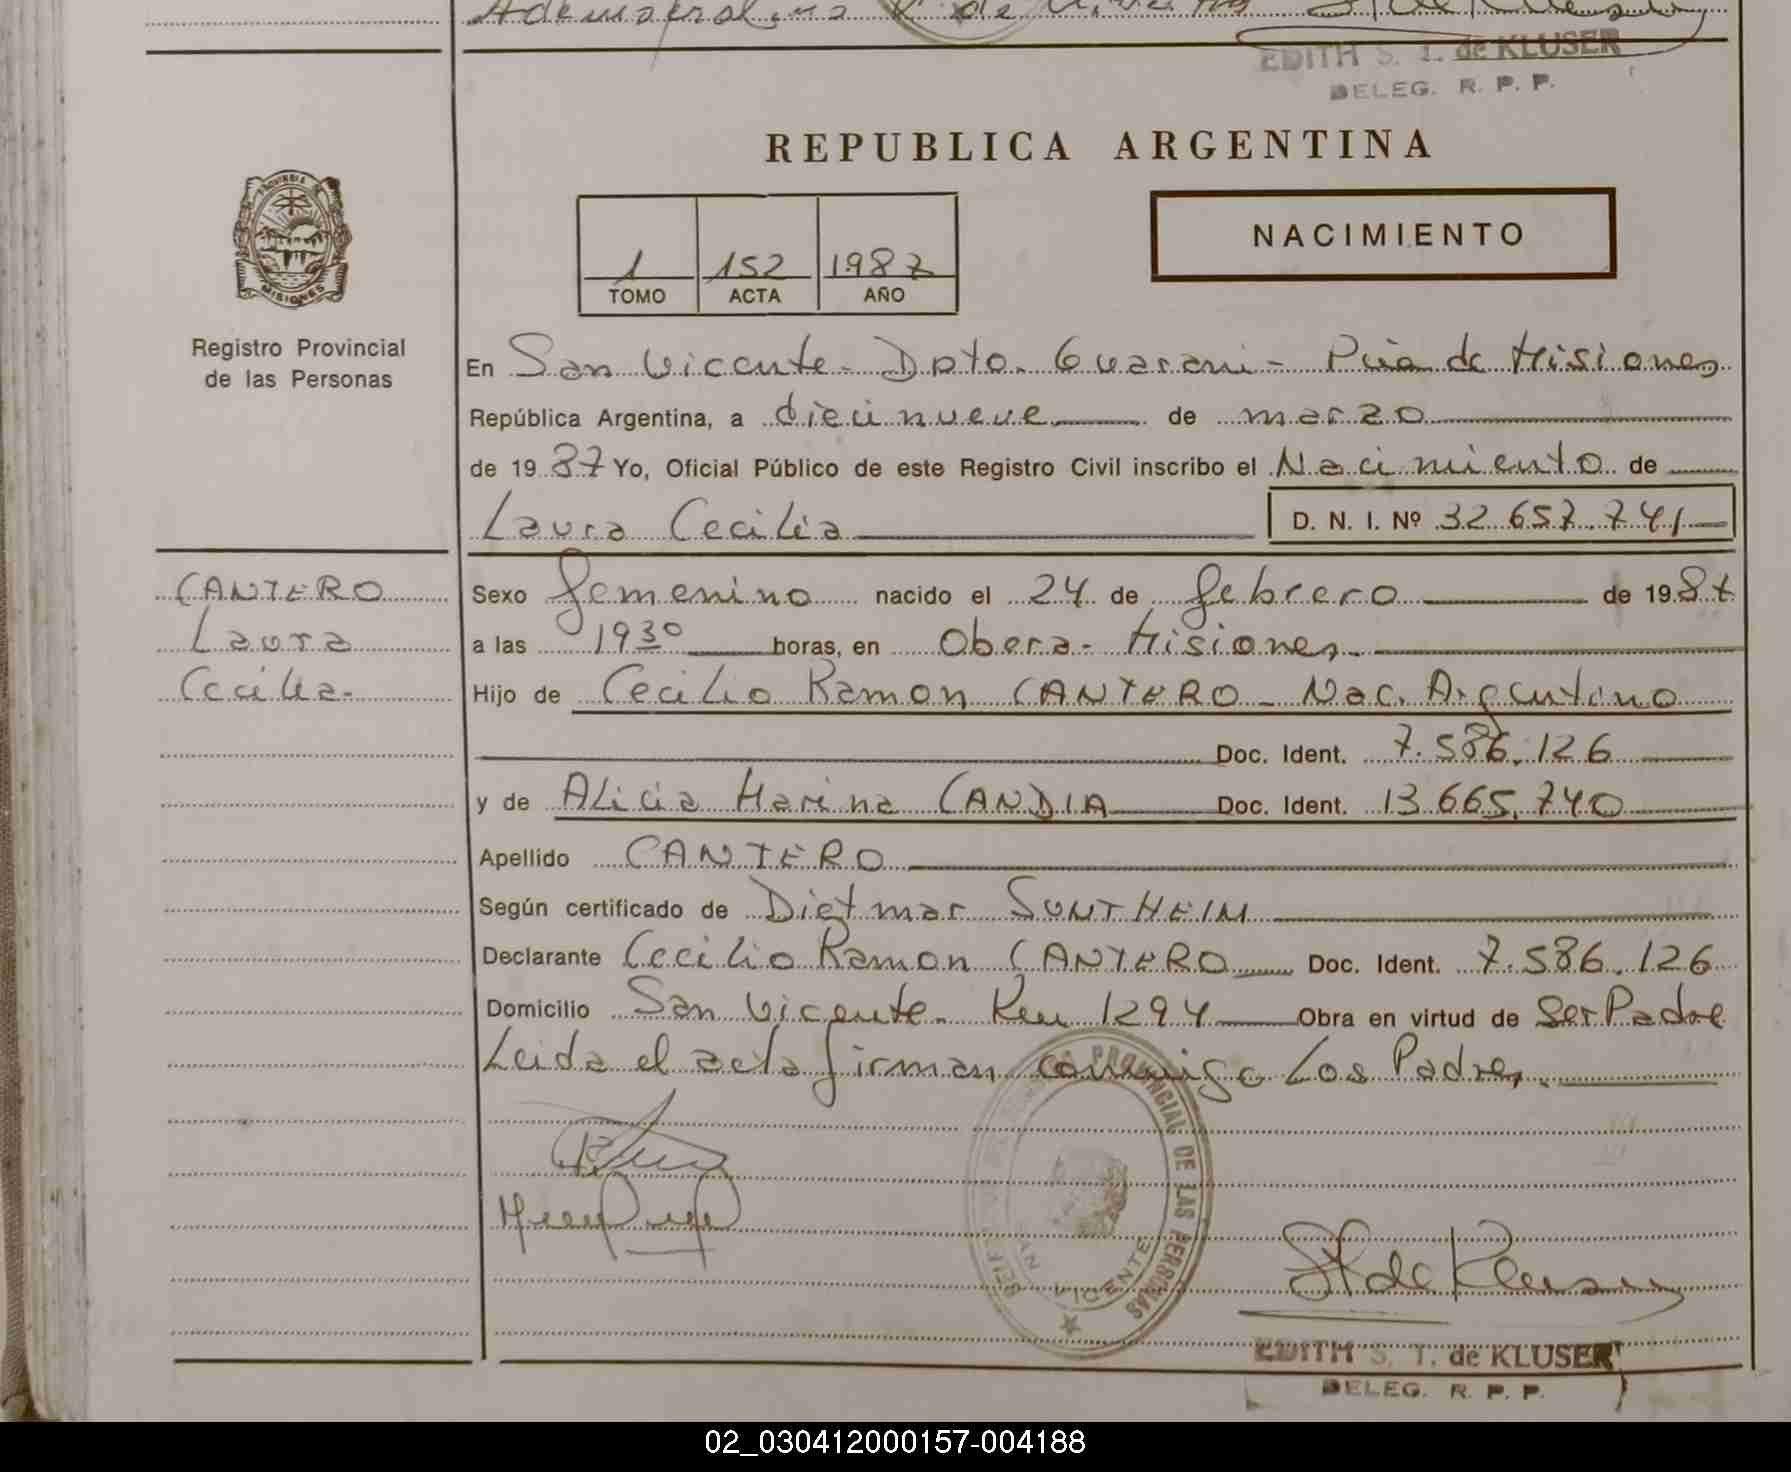 EDITH S. T. de KLUSER
DELEG. R. P. P.
REPUBLICA ARGENTINA
PROVINCIA DE
MISIONES
Registro Provincial
de las Personas
1 152 1987
TOMO ACTA AÑO
NACIMIENTO
En San Vicente - Dpto. Guarani - Pcia de Misiones
República Argentina, a diecinueve de marzo
de 1987 Yo, Oficial Público de este Registro Civil inscribo el Nacimiento de
Laura Cecilia D. N. I. Nº 32.657.741
CANTERO
Laura
Cecilia.
Sexo femenino nacido el 24 de febrero de 1987
a las 19 30 horas, en Obera - Misiones.
Hijo de Cecilio Ramon CANTERO - Nac. Argentino
Doc. Ident. 7.586.126
y de Alicia Marina CANDIA Doc. Ident. 13.665.740
Apellido CANTERO
Según certificado de Dietmar SUNTHEIM
Declarante Cecilio Ramon CANTERO Doc. Ident. 7.586.126
Domicilio San Vicente - Km 1294 Obra en virtud de Ser Padre
Leida el acta firman conmigo Los Padres.
PROVINCIAL DE LAS PERSONAS
VICENTE
EDITH S. T. de KLUSER
DELEG. R. P. P.
02_030412000157-004188